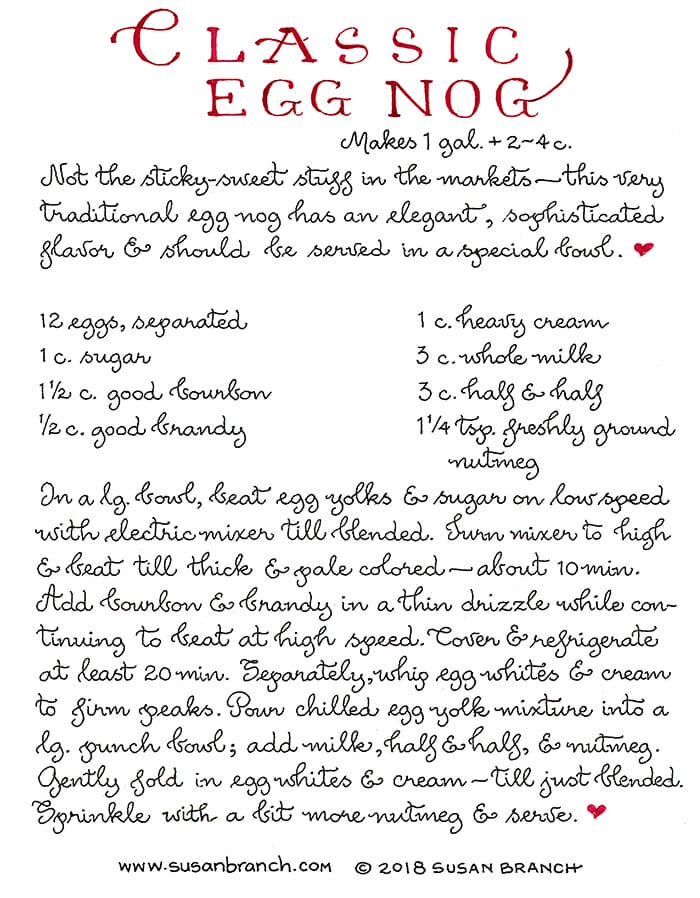 CLASSIC
EGG NOG
Makes 1 gal. + 2~4 c.
Not the sticky-sweet stuff in the markets—this very
traditional egg nog has an elegant, sophisticated
flavor & should be served in a special bowl. ♥
12 eggs, separated
1 c. sugar
1½ c. good bourbon
½ c. good brandy
1 c. heavy cream
3 c. whole milk
3 c. half & half
1¼ tsp. freshly ground
nutmeg
In a lg. bowl, beat egg yolks & sugar on low speed
with electric mixer till blended. Turn mixer to high
& beat till thick & pale colored—about 10 min.
Add bourbon & brandy in a thin drizzle while con-
tinuing to beat at high speed. Cover & refrigerate
at least 20 min. Separately, whip egg whites & cream
to firm peaks. Pour chilled egg yolk mixture into a
lg. punch bowl; add milk, half & half, & nutmeg.
Gently fold in egg whites & cream—till just blended.
Sprinkle with a bit more nutmeg & serve. ♥
www.susanbranch.com © 2018 SUSAN BRANCH